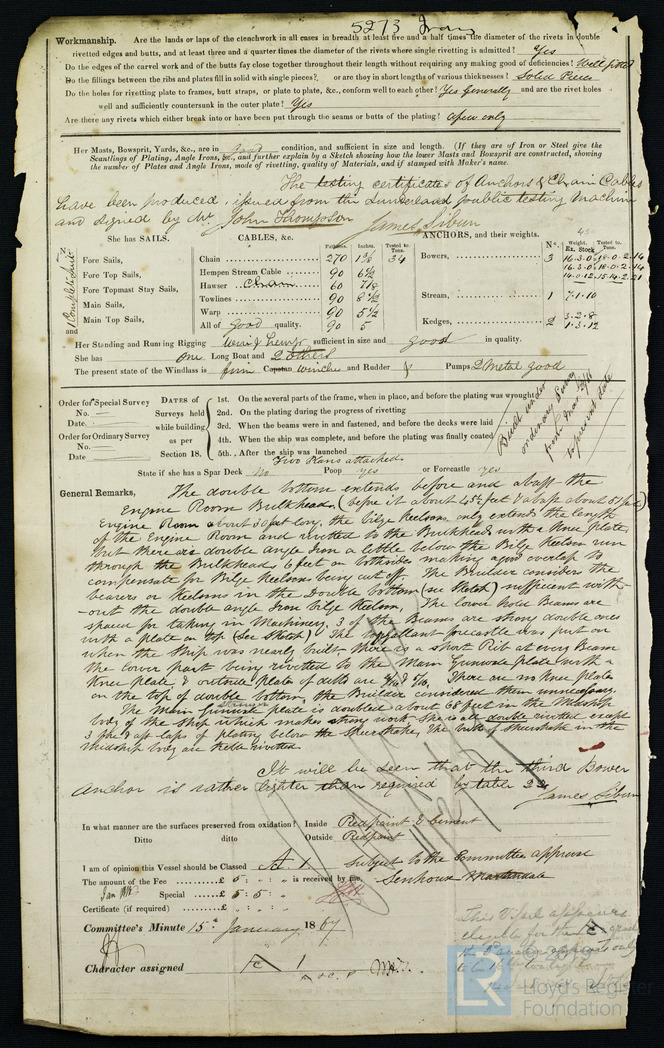 5273 Iron
Workmanship. Are the lands or laps of the clenchwork in all cases in breadth at least five and a half times the diameter of the rivets in double
rivetted edges and butts, and at least three and a quarter times the diameter of the rivets where single rivetting is admitted? Yes
Do the edges of the carvel work and of the butts fay close together throughout their length without requiring any making good of deficiencies? Well fitted
Do the fillings between the ribs and plates fill in solid with single pieces? or are they in short lengths of various thicknesses? Solid Pieces
Do the holes for rivetting plate to frames, butt straps, or plate to plate, &c., conform well to each other? Yes Generally and are the rivet holes
well and sufficiently countersunk in the outer plate? Yes
Are there any rivets which either break into or have been put through the seams or butts of the plating? a few only
Her Masts, Bowsprit, Yards, &c., are in good condition, and sufficient in size and length. (If they are of Iron or Steel give the
Scantlings of Plating, Angle Irons, &c., and further explain by a Sketch showing how the lower Masts and Bowsprit are constructed, showing
the number of Plates and Angle Irons, mode of rivetting, quality of Materials, and if stamped with Maker's name.
The testing certificates of Anchors & Chain Cables
have been produced, issued from the Sunderland public testing Machine
and signed by Mr. John Thompson
James Sibun
She has SAILS. CABLES, &c. Fathoms. Inches. Tested to Tons. ANCHORS, and their weights. No. Weight. Ex. Stock Tested to Tons.
1 Complete Suit and
Fore Sails, Chain 270 1 3/8 34 Bowers, 3 16.3.0 18.0.2.14
Fore Top Sails, Hempen Stream Cable 90 6 1/2 16.3.0 18.0.2.14
Fore Topmast Stay Sails, Hawser Chain 60 7/8 14.0.12 15.14.2.21
Main Sails, Towlines 90 8 1/2 Stream, 1 7.1.10
Main Top Sails, Warp 90 5 1/2 Kedges, 2 3.2.8
All of good quality. 90 5 1.3.12
Her Standing and Running Rigging Wire & hemp sufficient in size and good in quality.
She has one Long Boat and 2 others
The present state of the Windlass is firm Capstan winche and Rudder Pumps 2 Metal good
Order for Special Survey No. — Date. —
Order for Ordinary Survey No. — Date —
DATES of Surveys held while building as per Section 18.
1st. On the several parts of the frame, when in place, and before the plating was wrought
2nd. On the plating during the progress of rivetting
3rd. When the beams were in and fastened, and before the decks were laid
4th. When the ship was complete, and before the plating was finally coated
5th. After the ship was launched
Built under
ordinary Survey
to present date
Two Plans attached
State if she has a Spar Deck No Poop yes or Forecastle yes
General Remarks, The double bottom extends before and abaft the
Engine Room Bulkheads, (before it about 45 feet & abaft about 51 feet)
Engine Room about 50 feet long, the bilge Keelsons only extends the length
of the Engine Room and rivetted to the Bulkheads with a Knee plate,
but there are double angle Iron a little below the Bilge Keelson run
through the Bulkheads 6 feet on both sides making a good overlap to
compensate for Bilge Keelsons being cut off. The Builder considers the
bearers or Keelsons in the Double bottom (see Sketch) sufficient with
-out the double angle Iron bilge Keelson. The lower hold Beams are
spaced for taking in Machinery. 3 of the Beams are strong double ones
with a plate on top (see Sketch). The topgallant forecastle was put on
when the Ship was nearly built. there is a short Rib at every Beam
the lower part being rivetted to the Main Gunwale plate with a
Knee plate, & outside plates of ditto are There are no knee plates
on the top of double bottom, the Builder considered them unnecessary.
The Main Gunwale Stringer plate is doubled about 68 feet in the Midship
body of the Ship which makes strong work. She is all double rivetted except
3 fore & aft laps of plating below the Sheerstrake. The butts of Sheerstrake in the
Midship body are treble rivetted.
It will be seen that the third Bower
Anchor is rather lighter than required by table 22
James Sibun
In what manner are the surfaces preserved from oxidation? Inside Red paint & Cement
Ditto ditto Outside Red paint
I am of opinion this Vessel should be Classed A. 1 Subject to the Committee's approval
The amount of the Fee £ 5 : : is received by me,
Special £ 5 : 5 :
Senhouse Martindale
Certificate (if required) £ : :
Committee's Minute 15th January 1867
Character assigned A 1
This Vessel appears
eligible for the A
Lloyd's Register
Foundation